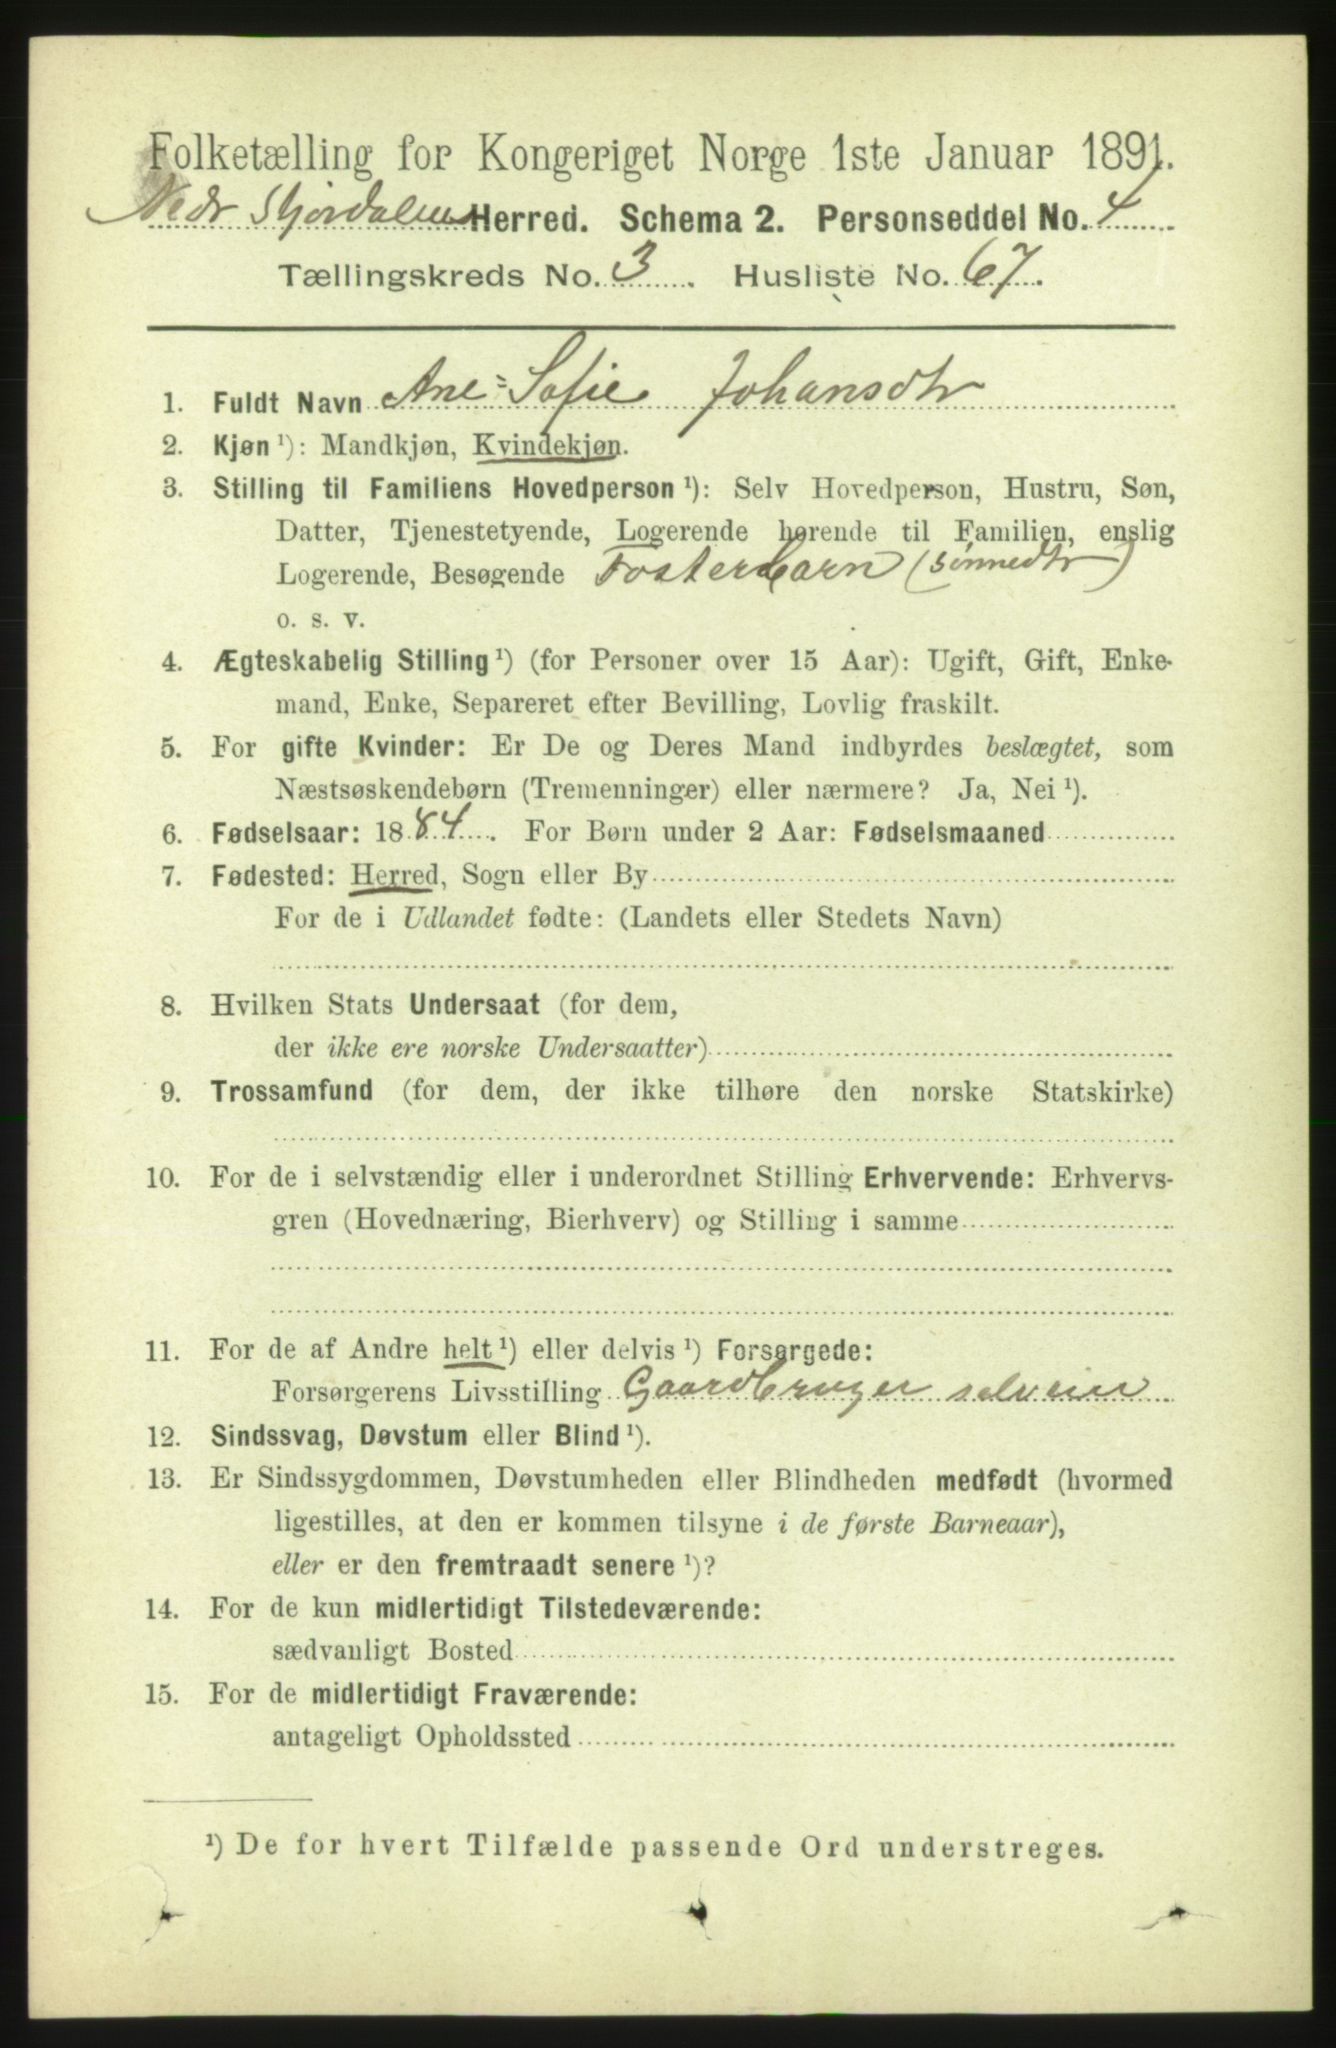 Folketælling for Kongeriget Norge 1ste Januar 1891.
Nedr Stjørdalens Herred. Schema 2. Personseddel No. 4
Tællingskreds No. 3. Husliste No. 67.
1. Fuldt Navn Ane=Sofie Johansdtr
2. Kjøn¹): Mandkjøn, Kvindekjøn.
3. Stilling til Familiens Hovedperson¹): Selv Hovedperson, Hustru, Søn,
Datter, Tjenestetyende, Logerende hørende til Familien, enslig
Logerende, Besøgende Fosterbarn (Sønnedtr)
o. s. v.
4. Ægteskabelig Stilling¹) (for Personer over 15 Aar): Ugift, Gift, Enke-
mand, Enke, Separeret efter Bevilling, Lovlig fraskilt.
5. For gifte Kvinder: Er De og Deres Mand indbyrdes beslægtet, som
Næstsøskendebørn (Tremenninger) eller nærmere? Ja, Nei¹).
6. Fødselsaar: 1884. For Børn under 2 Aar: Fødselsmaaned
7. Fødested: Herred, Sogn eller By
For de i Udlandet fødte: (Landets eller Stedets Navn)
8. Hvilken Stats Undersaat (for dem,
der ikke ere norske Undersaatter)
9. Trossamfund (for dem, der ikke tilhøre den norske Statskirke)
10. For de i selvstændig eller i underordnet Stilling Erhvervende: Erhvervs-
gren (Hovednæring, Bierhverv) og Stilling i samme
11. For de af Andre helt¹) eller delvis¹) Forsørgede:
Forsørgerens Livsstilling Gaardbruger selveier
12. Sindssvag, Døvstum eller Blind¹).
13. Er Sindssygdommen, Døvstumheden eller Blindheden medfødt (hvormed
ligestilles, at den er kommen tilsyne i de første Barneaar),
eller er den fremtraadt senere¹)?
14. For de kun midlertidigt Tilstedeværende:
sædvanligt Bosted
15. For de midlertidigt Fraværende:
antageligt Opholdssted
¹) De for hvert Tilfælde passende Ord understreges.